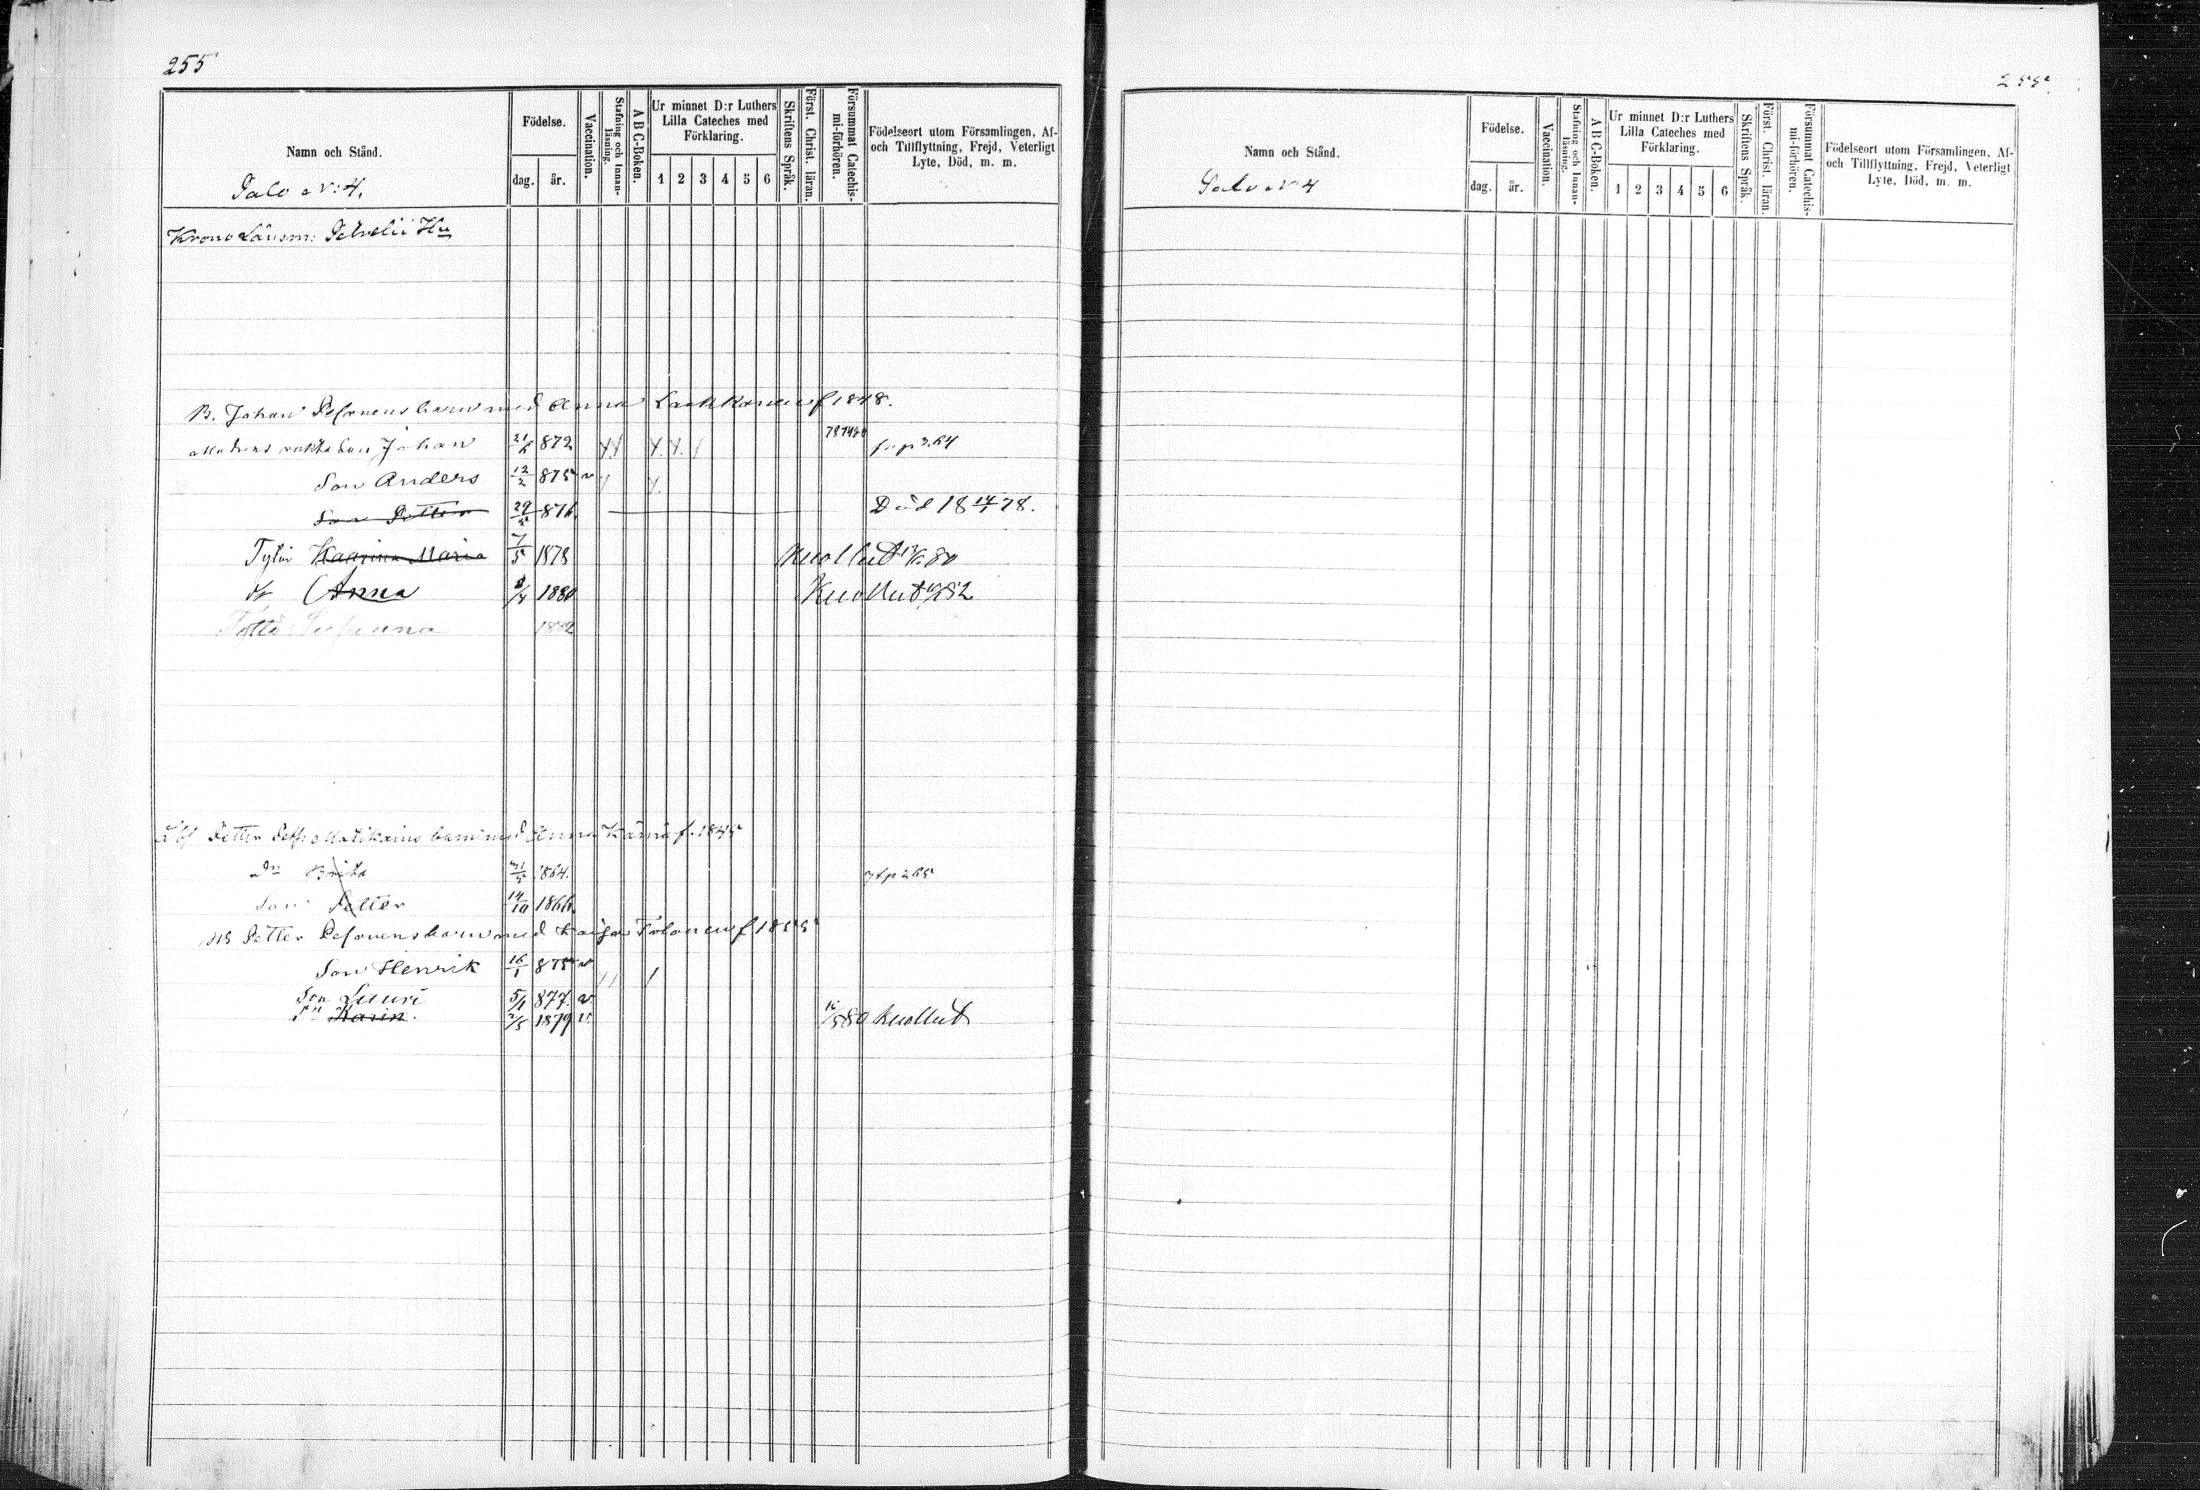 255
Namn och Stånd.
Födelse.
dag. år.
Vaccination.
Stafning och Innanläsning.
A B C-Boken.
Ur minnet D:r Luthers Lilla Cateches med Förklaring.
1 2 3 4 5 6
Skriftens Språk.
Först. Christ. läran.
Försummat Catechismi-förhören.
Födelseort utom Församlingen, Af- och Tillflyttning, Frejd, Veterligt Lyte, Död, m. m.
Salo N:4.
Krono Länsm:
B. Johan Pesonens barn med Anna f 1848.
son Johan 21 872
Son Anders 12/2 875 v
Son Petter 29 876 Död 18 14/1 78.
Tytär Kaarina Maria 7/5 1878 Kuollut 80
Anna 1880 Kuollut 82
1882
Petter barn med Anna f. 1845
Dr Brita 1864.
Son Petter 14/10 1866.
Petter Pesonens barn med Kaisa Tolonen f 1855
Son Henrik 16/1 875 v
Son Lauri 5/1 877. v.
Karin. 2/5 1879 v. 16/5 80 kuollut
255.
Namn och Stånd.
Födelse.
dag. år.
Vaccination.
Stafning och Innanläsning.
A B C-Boken.
Ur minnet D:r Luthers Lilla Cateches med Förklaring.
1 2 3 4 5 6
Skriftens Språk.
Först. Christ. läran.
Försummat Catechismi-förhören.
Födelseort utom Församlingen, Af- och Tillflyttning, Frejd, Veterligt Lyte, Död, m. m.
Salo N 4